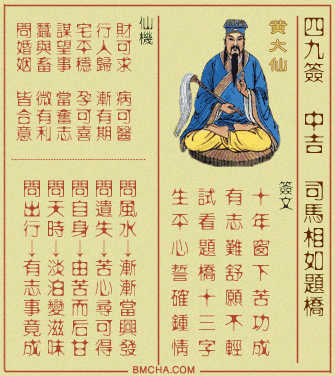 四九簽　中吉　司馬相如題橋
黃大仙
簽文
十年窗下苦功成
有志難舒願不輕
試看題橋十三字
生平心誓確鍾情
仙機
財可求　病可醫
行人歸　漸有期
宅平穩　孕可喜
謀望事　當奮志
蠶與畜　微有利
問婚姻　皆合意
問風水→漸漸當興發
問遺失→苦心尋可得
問自身→由苦而后甘
問天時→淡泊變滋味
問出行→有志事竟成
BMCHA.COM